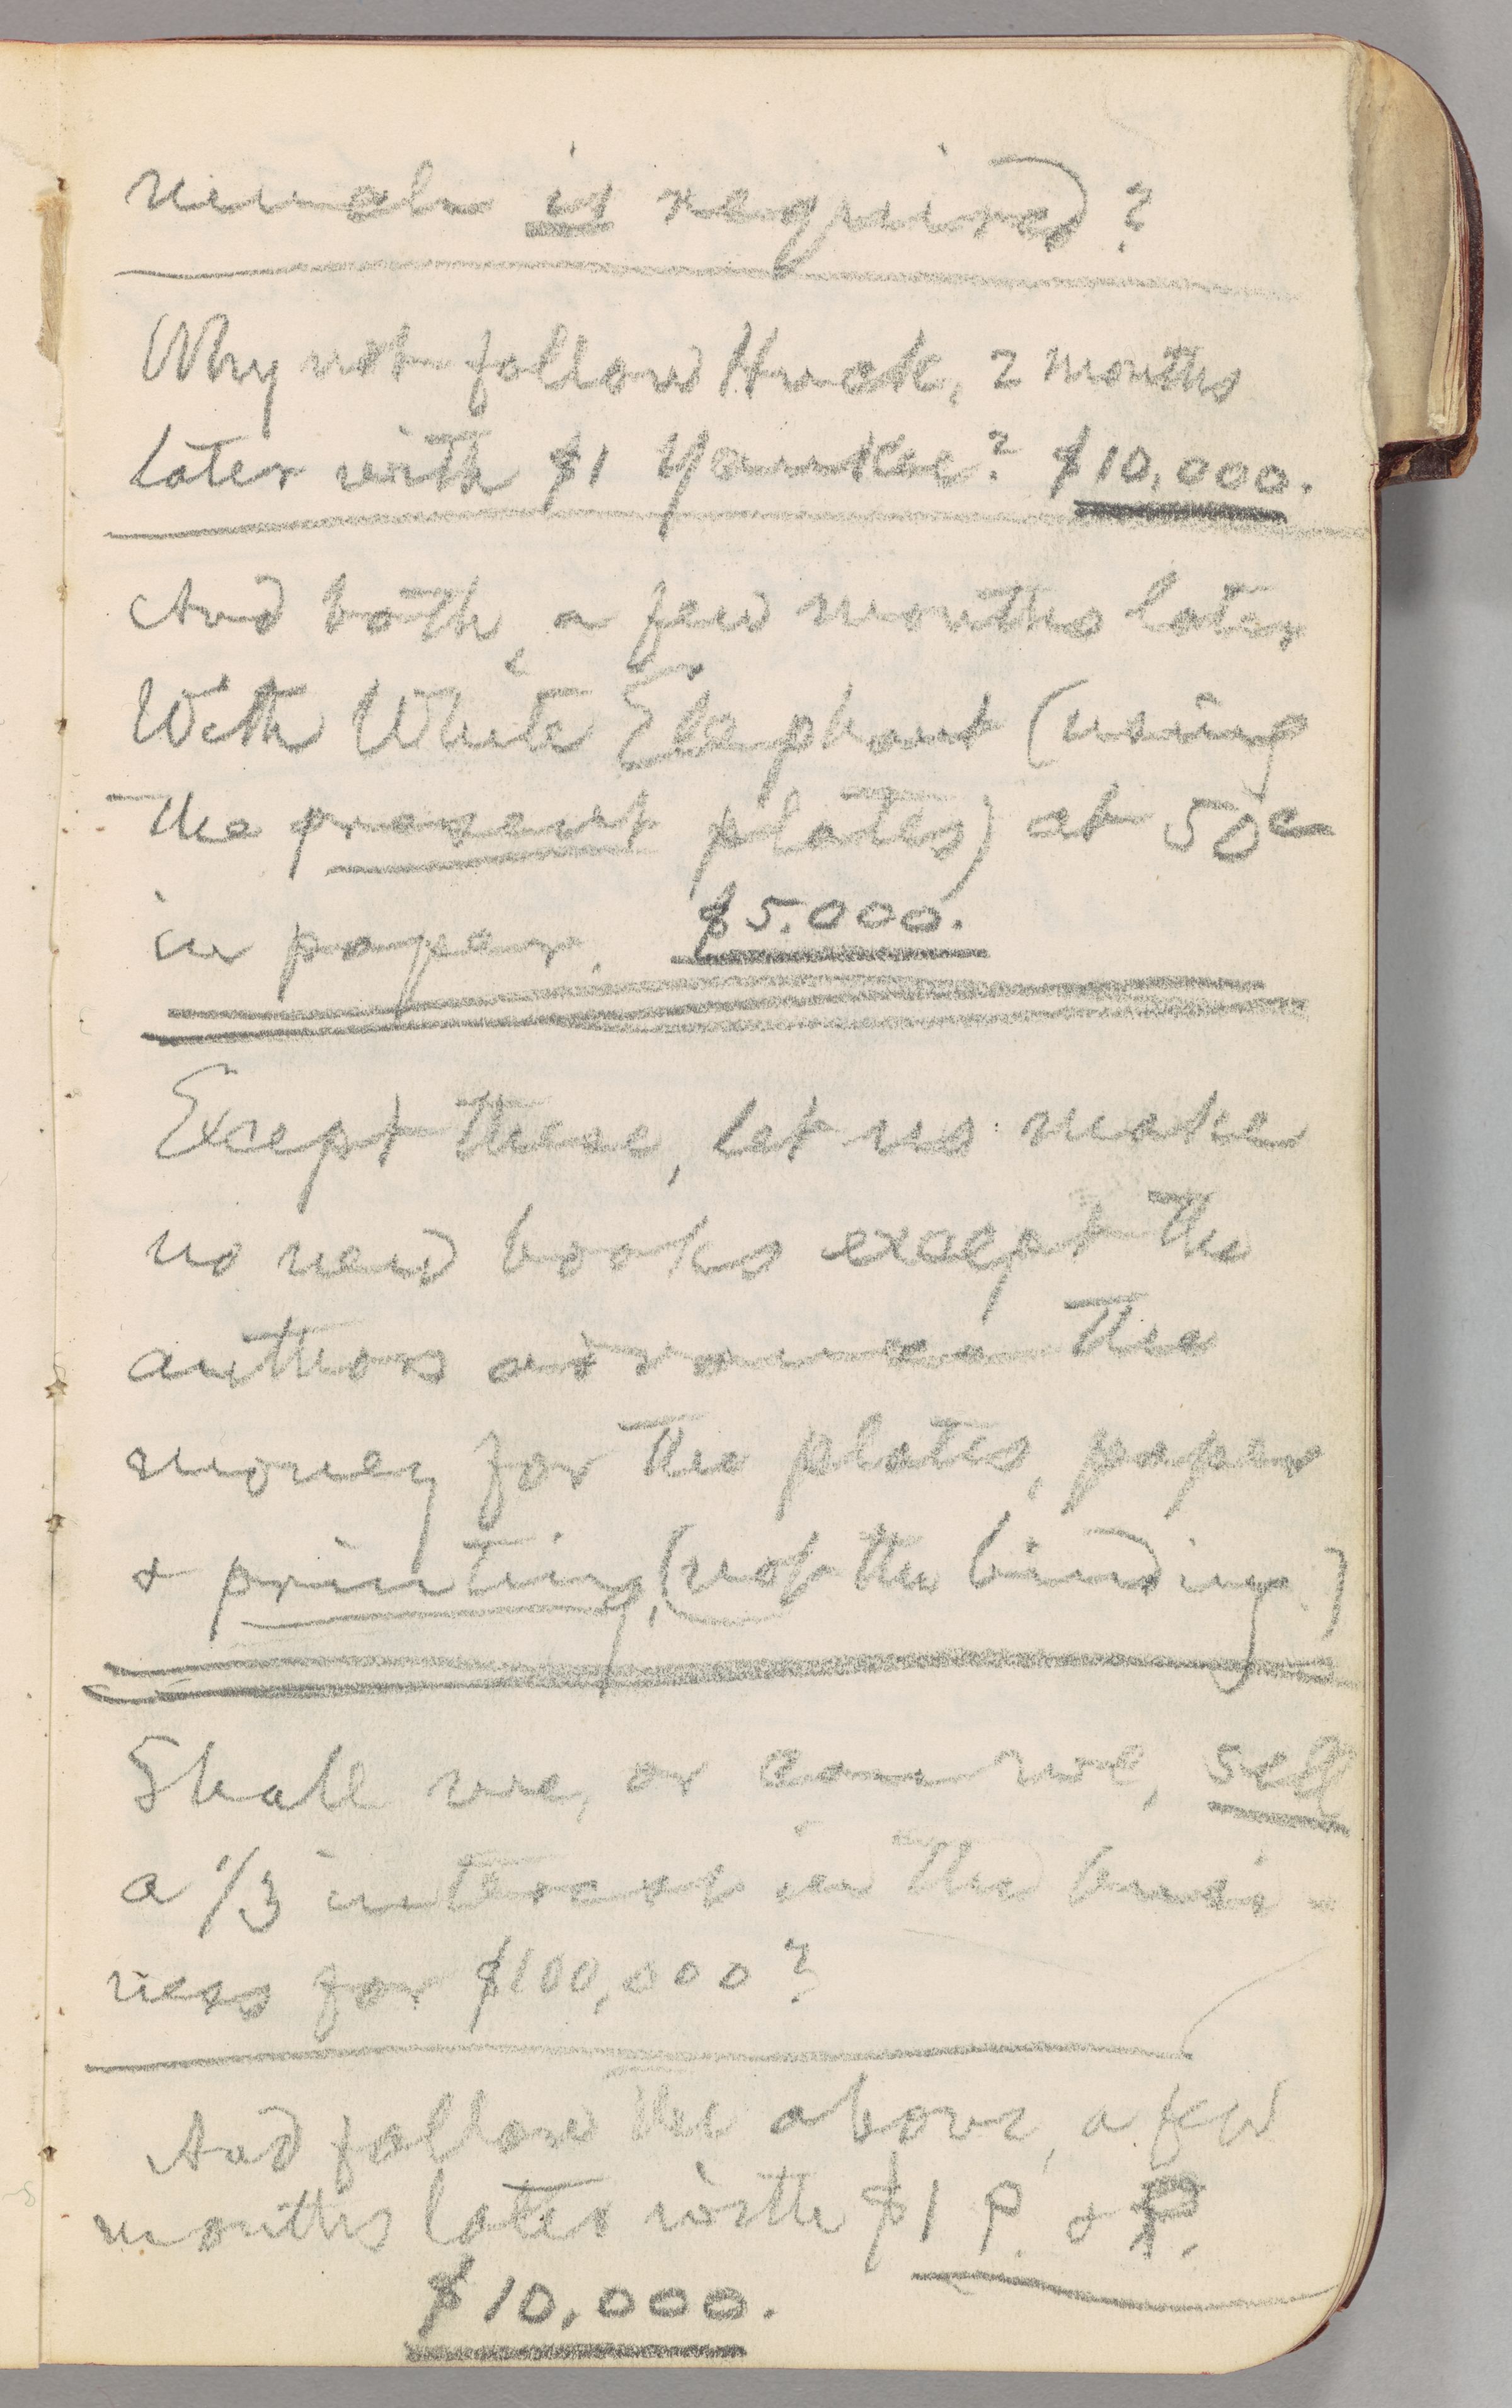 much is required?
Why not follow Huck, 2 months
later with $1 Yankee? $10,000.
And both, a few months later
With White Elephant (using
the present plates) at 50c
in paper. $5.000.
Except these, let us make
no new books except the
authors advance the
money for the plates, paper
& printing, (not the binding.)
Shall we, or can we, sell
a 1/3 interest in the busi-
ness for $100,000?
And follow the above, a few
months later with $1 P. & P.
$10,000.